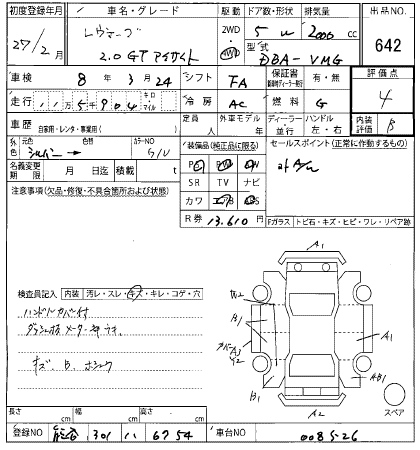 初度登録年月 車名・グレード 駆動 ドア数・形状 排気量 出品NO.
27/2月 レヴォーグ 2WD 4WD 5 W 2000 cc 642
2.0GTアイサイト 型式 DBA-VMG
車検 8年3月24 シフト FA 保証書 有・無 評価点
走行 11万5千904 キロ マイル 冷房 AC 燃料 G 4
車歴 自家用・レンタ・事業用( ) 定員 人 外車モデル 年 ディーラー・並行 ハンドル 左・右 内装評価 B
外色 元色 シルバー→ 色替 カラーNO G1U 装備品(純正品に限る) セールスポイント(正常に作動するもの)
名義変更期限 月 日迄 積載 t PS PW
注意事項(欠品・修復・不具合箇所および状態) SR TV ナビ
カワ
R券 13.610 Fガラス トビ石・キズ・ヒビ・ワレ・リペア跡
A1
検査員記入 内装 汚レ・スレ・キズ・キレ・コゲ・穴 W2
ハンドルカバー付 B1
A1
カバーA3
Y2
キズ、B、ホシュウ AB1
B1
A2 スペア
長さ cm 幅 cm 高さ cm
登録NO 301 11 6754 車台NO 008526